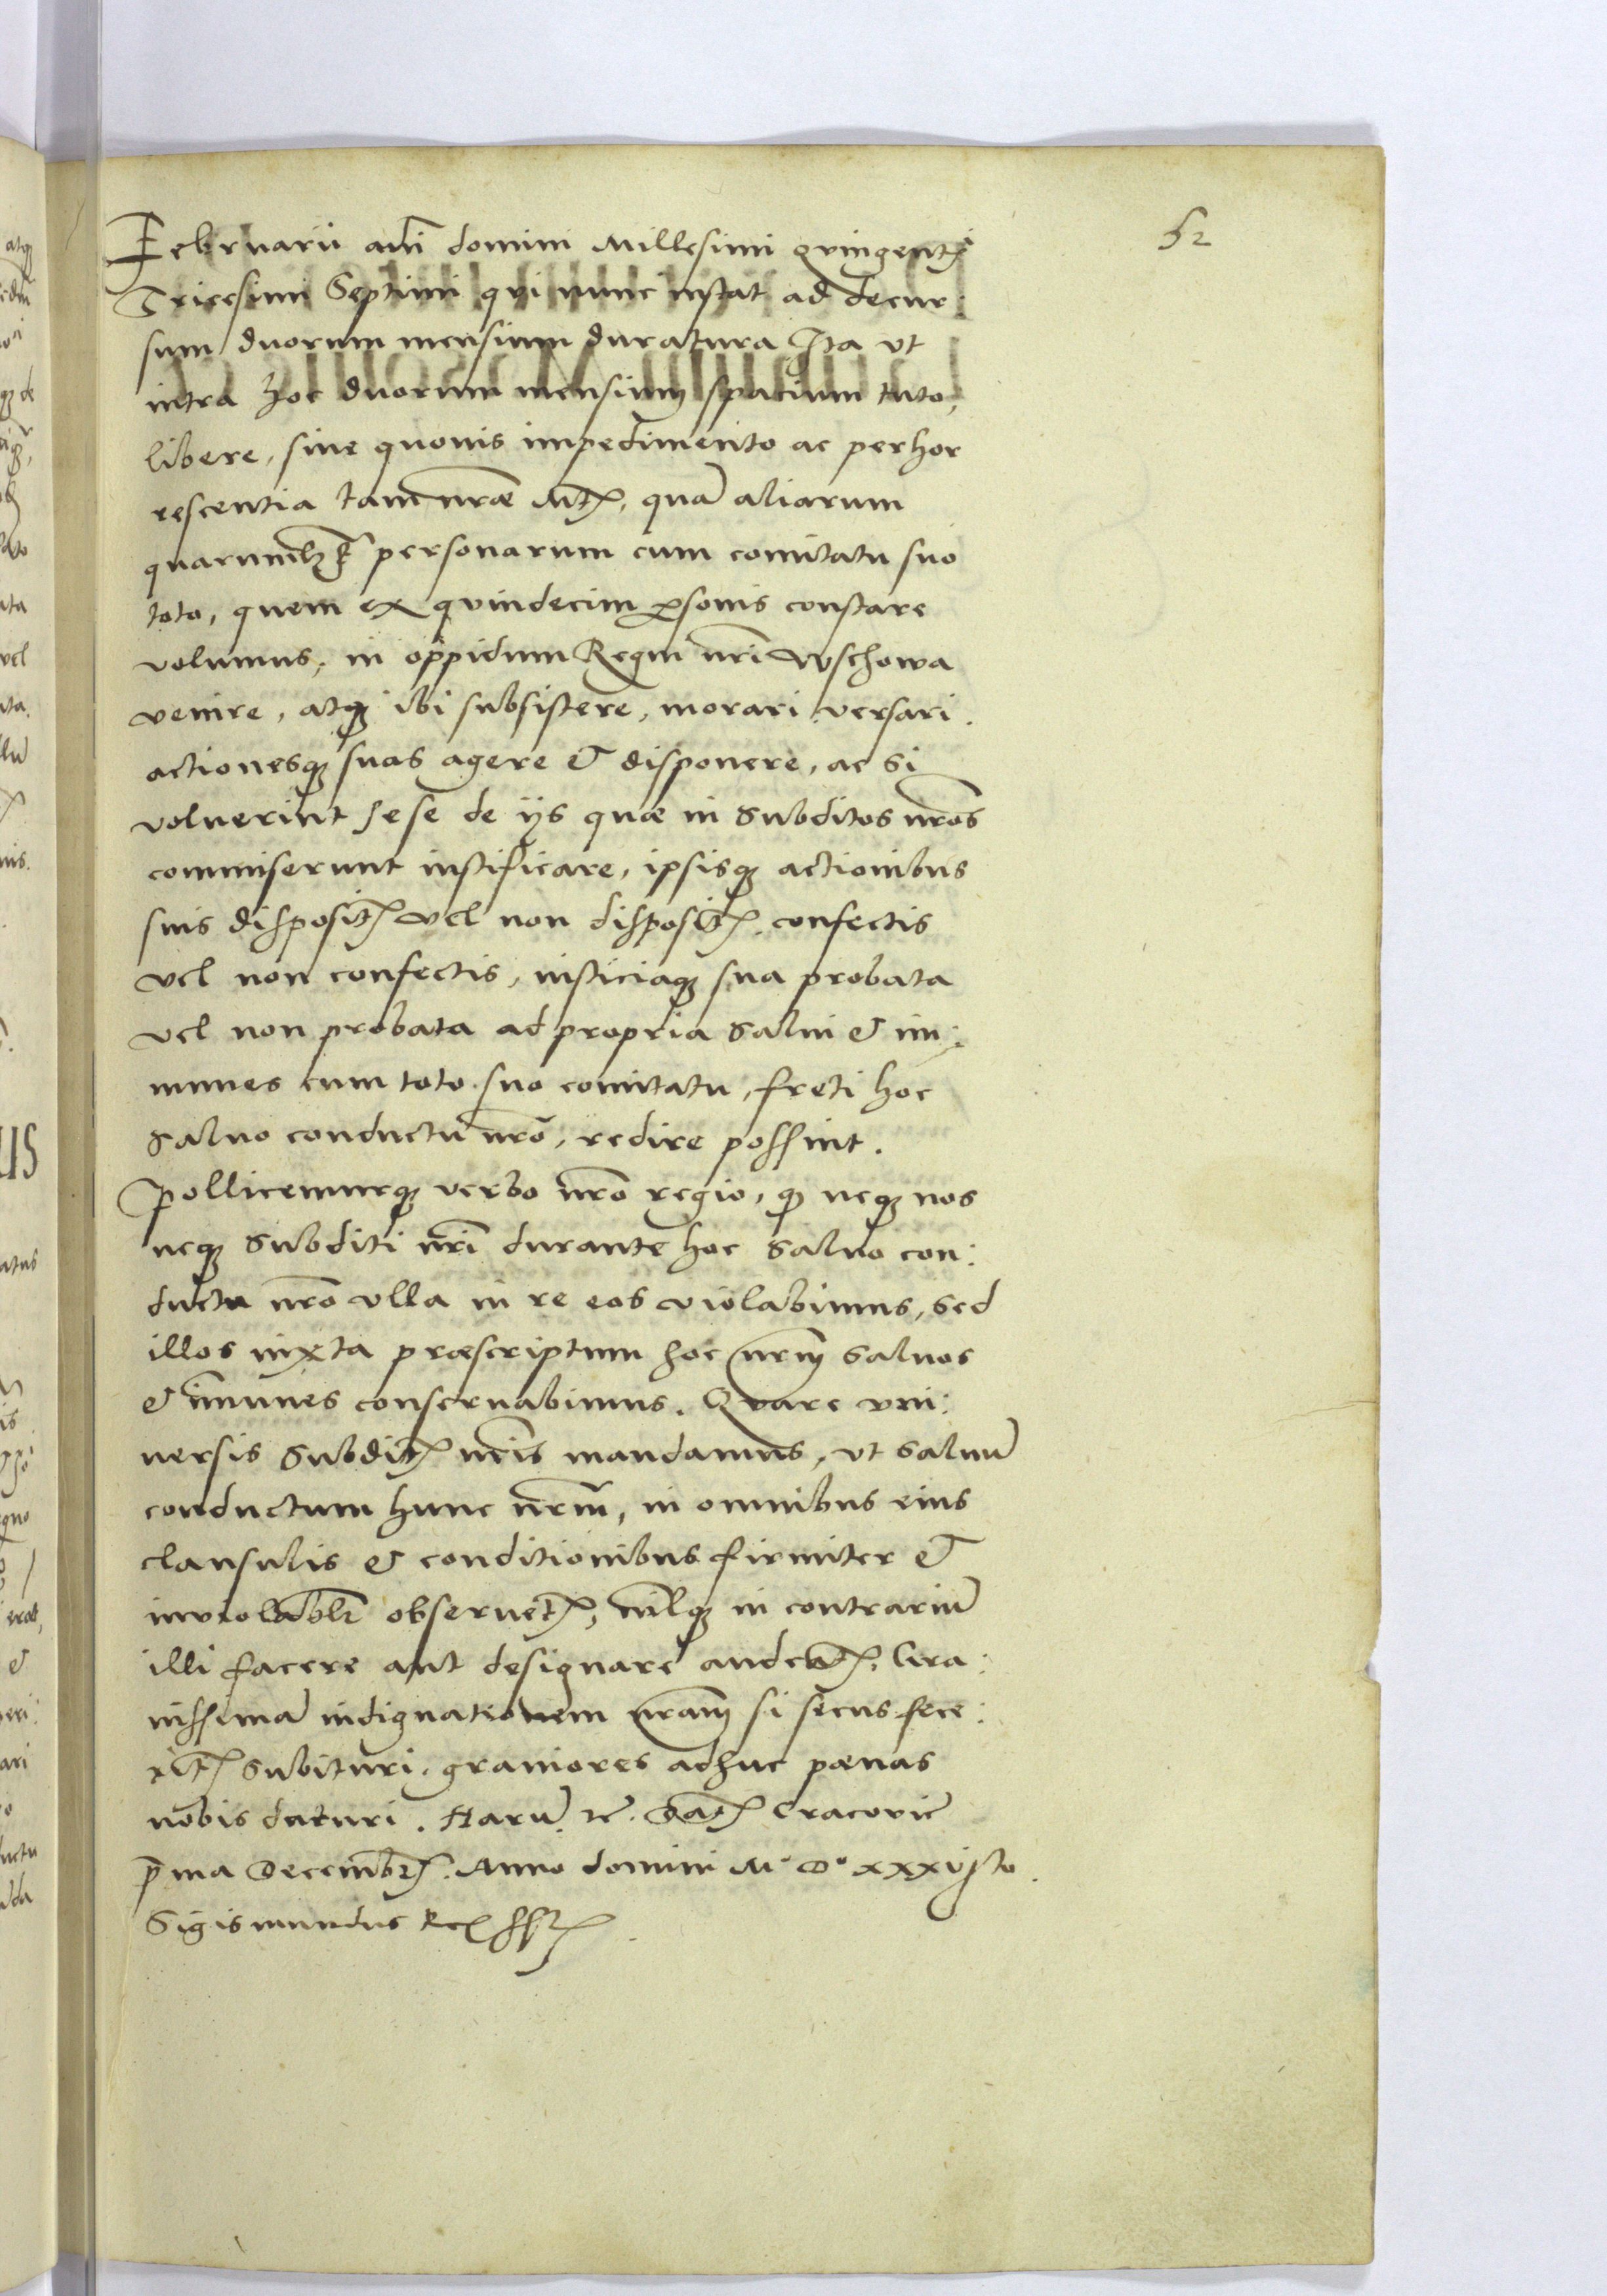 52
Februarii añi domini Millesimi quingentⁱ
Tricesimi Septimi qui nunc instat ad decur:
sum duorum mensium duratura Ita vt
intra hoc duorum mensium spatium tuto,
libere, sine quouis impedimento ac perhor
rescentia tam nr̃æ Mtꝭ, quã aliarum
personarum cum comitatu suo
toto, quem ex quindecim ꝑsonis constare
volumus, in oppidum Regni nr̃i Wschowa
venire, atqꝫ ibi subsistere, morari versari.
actionesqꝫ suas agere & disponere, ac si
voluerint sese de ijs quæ in Subditos nr̃os
commiserunt iustificare, ipsisqꝫ actionibus
suis dispositꝭ vel non dispositꝭ, confectis
vel non confectis, iusticiaqꝫ sua probata
vel non probata ad propria Salui & im:
munes cum toto suo comitatu, freti hoc
Saluo conductu nr̃o, redire possint.
Pollicemurqꝫ verbo nr̃o regio, ꝙ neqꝫ nos
neqꝫ Subditi nr̃i durante hoc Saluo con:
ductu nr̃o vlla in re eos violabimus, sed
illos iuxta præscriptum hoc nr̃m Saluos
& im̃unes conseruabimus. Quare vni:
uersis Subditꝭ nr̃is mandamus, vt Saluũ
conductum hunc nr̃m, in omnibus eius
clausulis & conditionibus firmiter &
inviolabłr obseruetꝭ, nilqꝫ in contrariũ
illi facere aut designare audeatꝭ, Gra:
uissimã indignationem nr̃am si secus fece:
ritꝭ Subituri, grauiores adhuc pœnas
nobis daturi. Harũ &c. Datꝭ Cracovie
p̃ma Decembrꝭ. Anno domini M° D° xxxvjto.
Sigismundus Rex sst